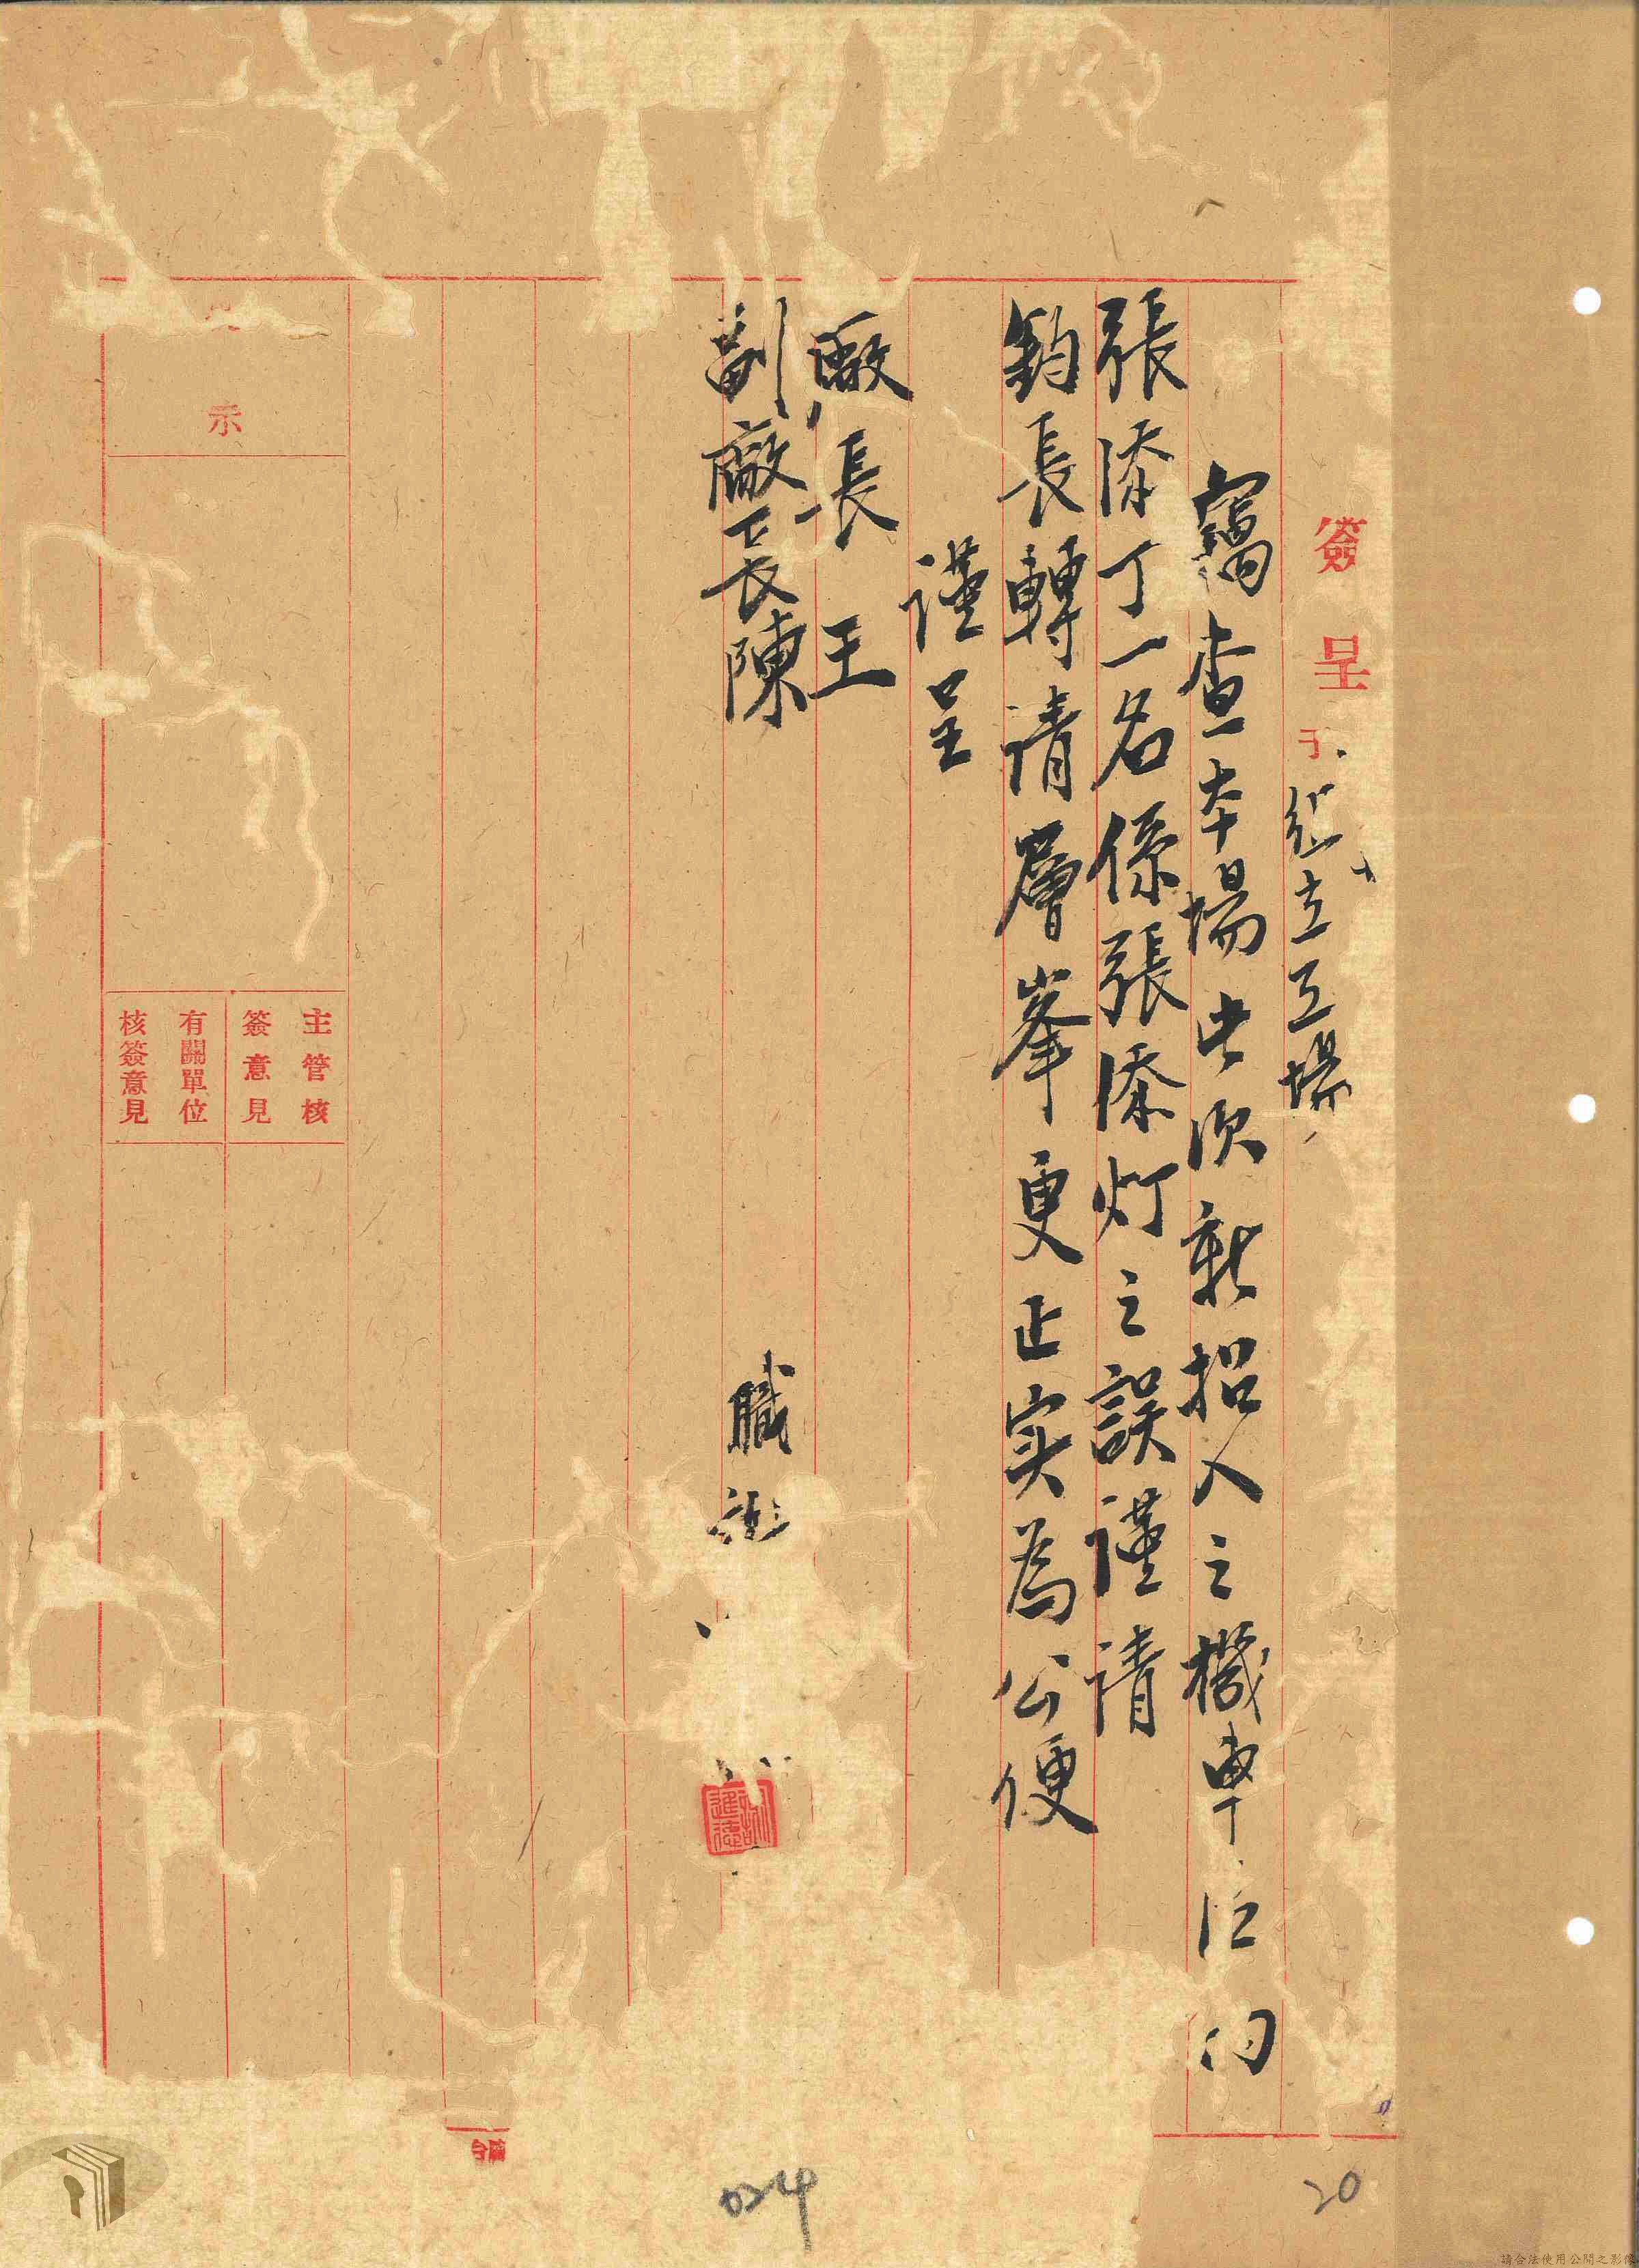 簽呈 于 組立工場
竊查本場此次新招入之機車工内
張添丁一名係張添灯之誤謹請
鈞長轉請層峯更正实為公便
謹呈
廠長王
副廠長陳
職
謝進德
示
主管核
簽意見
有關單位
核簽意見
024
20
請合法使用公開之影像